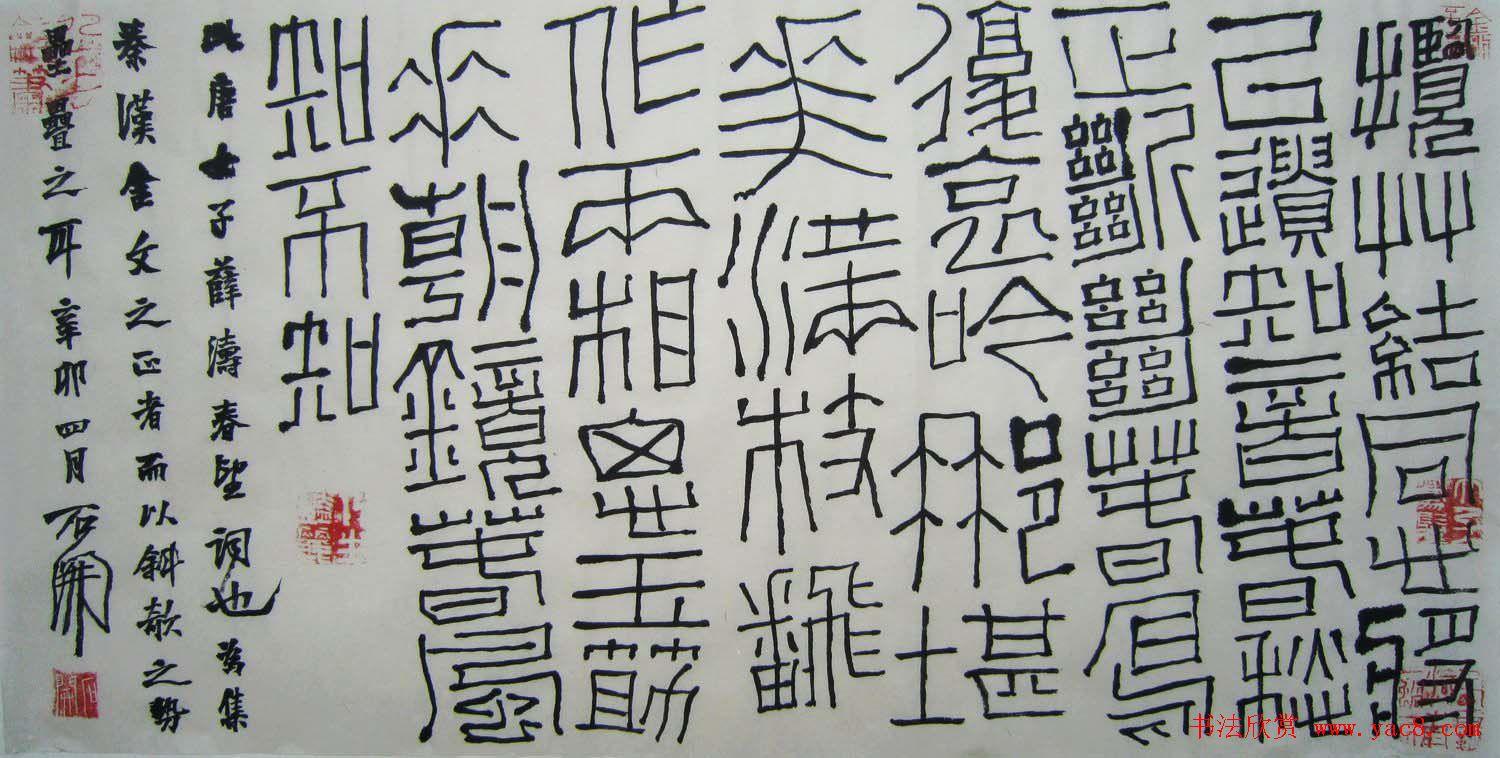 攬艸結同心將
以遺知音春愁
正斷絕春鳥
復哀吟那堪
花滿枝飜
作兩相思玉筯
垂朝鏡春風
知不知
此唐女子薛濤春望詞也集
秦漢金文之正者而以斜欹之勢
壘疊之耳辛卯四月石開
书法欣赏 www.yac8.com